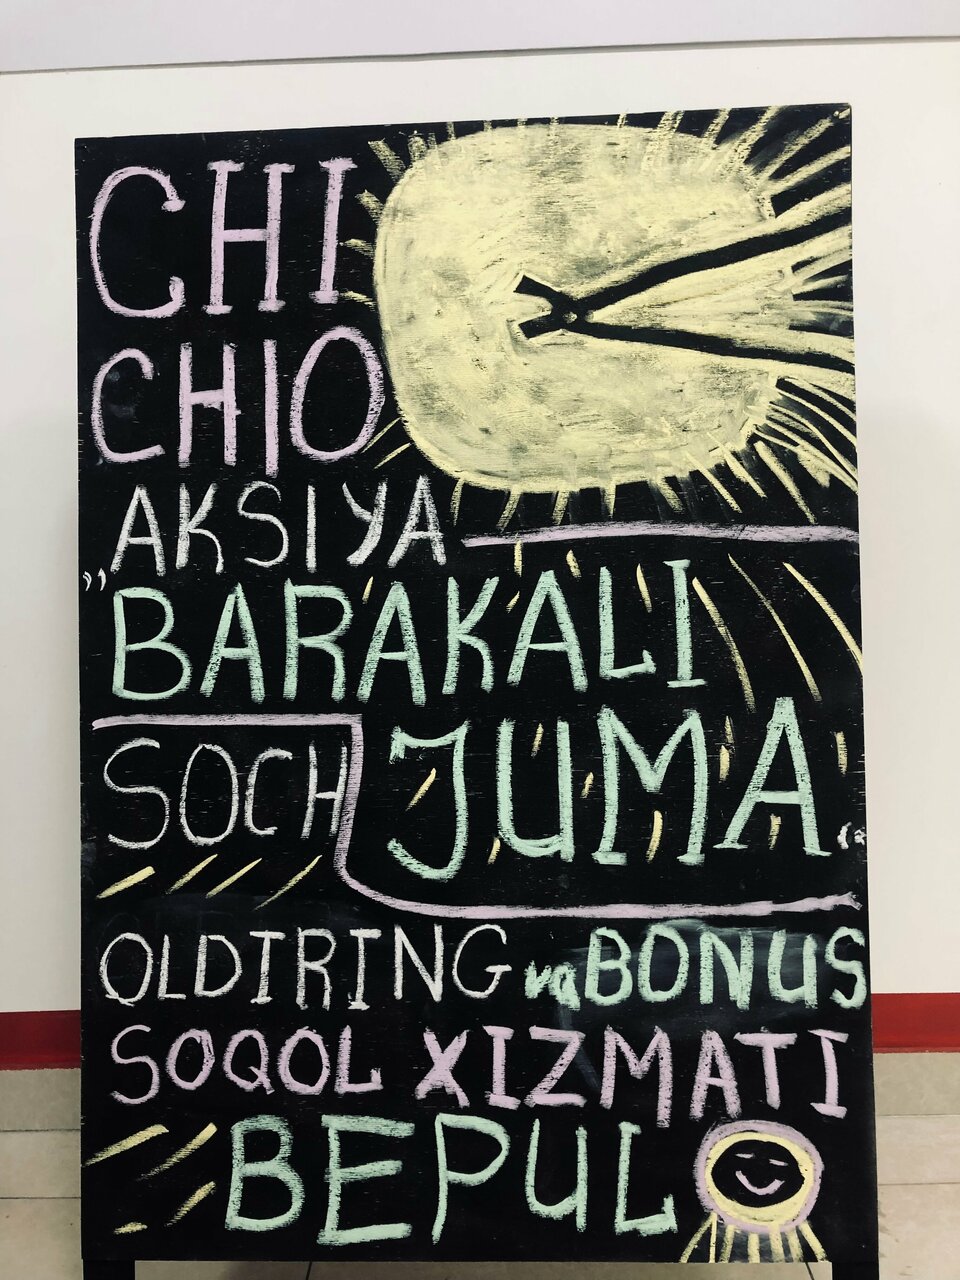 CHI
CHIO
AKSIYA
,,BARAKALI
SOCH JUMA
OLDIRING va BONUS
SOQOL XIZMATI
BEPUL